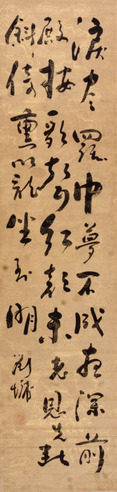 淚尽羅巾夢不成夜深前
殿按歌聲紅顔未老恩先断
斜倚熏籠坐到明
劉墉